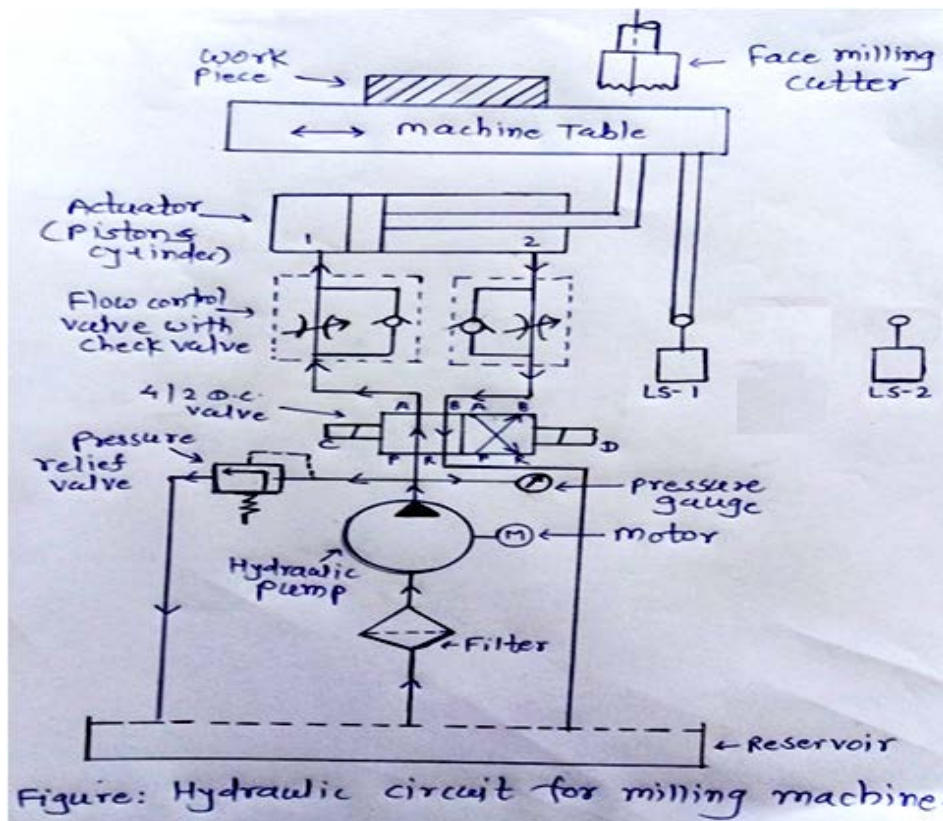 Work
piece
Face milling
cutter
Machine Table
Actuator
(Piston &
cylinder)
1
2
Flow control
valve with
check valve
LS-1
LS-2
4/2 D.C.
valve
A
B
A
B
C
D
P
R
P
R
Pressure
relief
valve
Pressure
gauge
M
motor
Hydraulic
pump
Filter
Reservoir
Figure: Hydraulic circuit for milling machine.